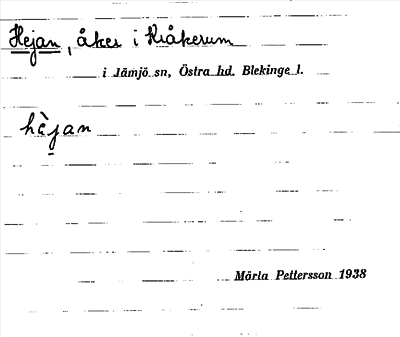 Hejan, åker i Kråkerum
i Jämjö sn, Östra hd. Blekinge l.
hèjan
Märta Pettersson 1938